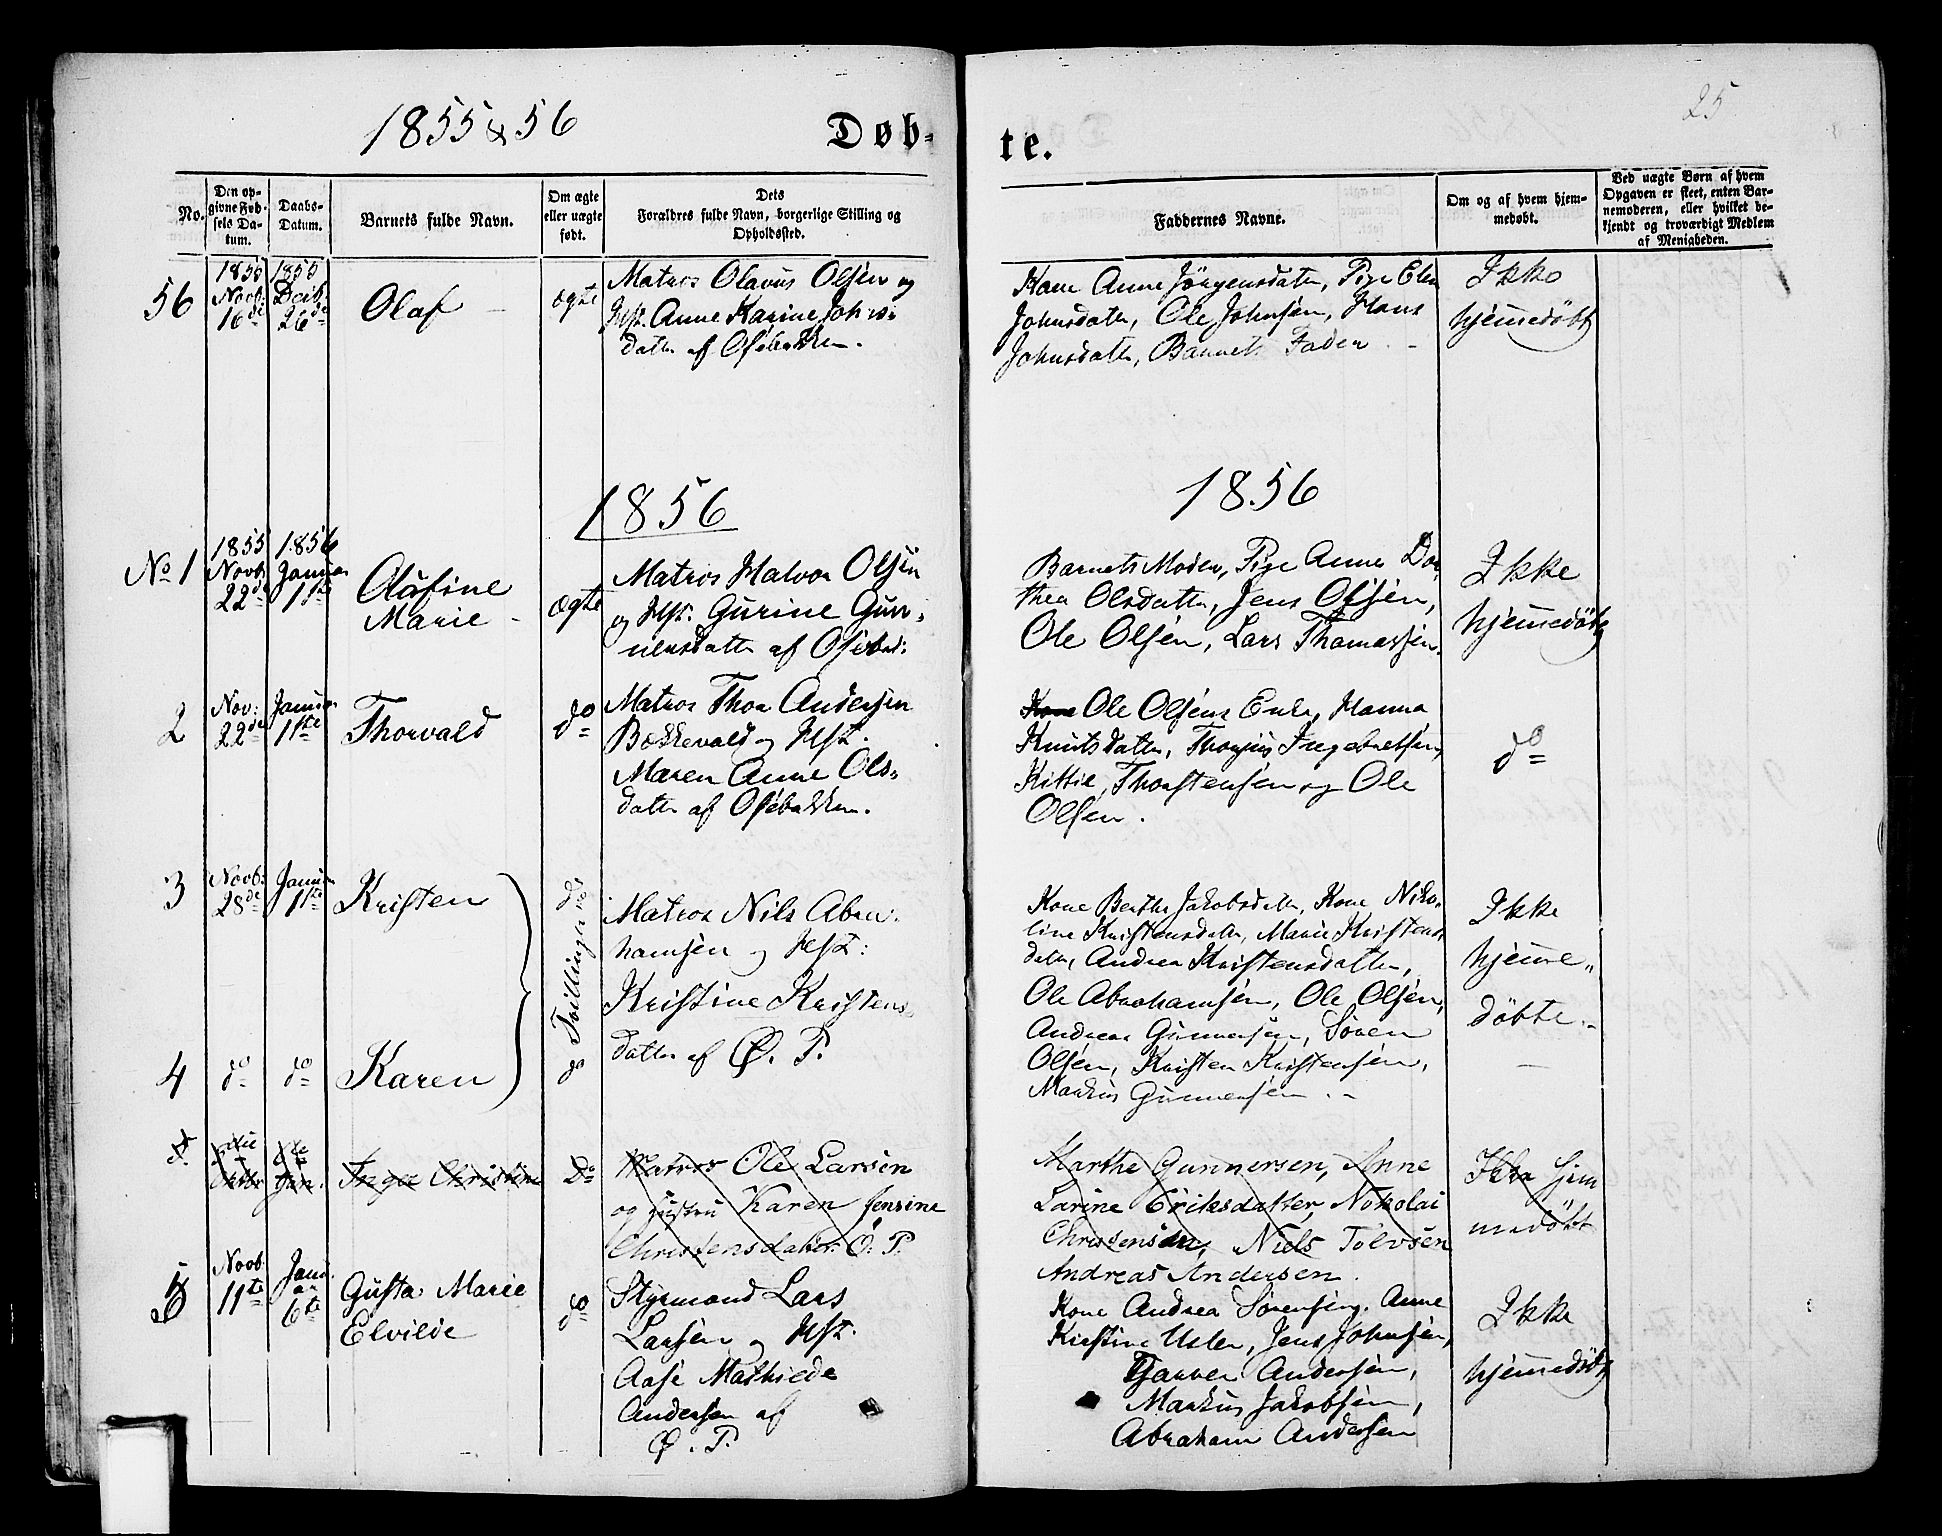 1855 & 56
Døb-
te.
25
No.
Den op-
givne Fød-
sels Da-
tum.
Daabs-
Datum.
Barnets fulde Navn.
Om ægte
eller uægte
født.
Dets
Forældres fulde Navn, borgerlige Stilling og
Opholdssted.
Faddernes Navne.
Om og af hvem hjem-
medøbt.
Ved uægte Børn af hvem
Opgaven er skeet, enten Bar-
nemoderen, eller hvilket be-
kjendt og troværdigt Medlem
af Menigheden.
56
1855
Novb:
16de
1855
Decb:
26de
Olaf
ægte
Matros Olavus Olsen og
Hst. Anne Karine Johns-
datter af Osebakken.
Kone Anne Jörgensdatter, Pige Elen
Johnsdatter, Ole Johnsen, Hans
Johnsdatter, Barnets Fader.
Ikke
hjemmedøbt
1856
1856
No 1
1855
Novb:
22de
1856
Januar
1ste
Olafine
Marie
ægte
Matros Halvor Olsen
og Hst. Gurine Gun-
nensdatter af Osebak:
Barnets Moder, Pige Anne Dor-
thea Olsdatter, Jens Olsen,
Ole Olsen, Lars Thomassen.
Ikke
hjemmedøbt
2
Nov:
22de
Januar
1ste
Thorvald
do
Matros Thor Andersen
Bækkevold og Hst.
Maren Anne Ols-
datter af Osebakken.
Kone Ole Olsens Enke, Hanna
Knutsdatter, Ingebretsen,
Kittil Thorstensen og Ole
Olsen.
do
3
Novb:
28de
Januar
1ste
Kristen
do
Tvillinger
Matros Nils Abra-
hamsen og Hst:
Kristine Kristens-
datter af Ø. P.
Kone Berthe Jakobsdatter, Kone Niko-
line Kristensdatter, Marie Kristens-
datter, Andrea Kristensdatter,
Ole Abrahamsen, Ole Olsen,
Andreas Gunnersen, Sören
Olsen, Kristen Kristensen,
Markus Gunnersen.
Ikke
hjemme-
døbte.
4
do
do
Karen
do
5.
Oktbr
6te
Jan.
Inger Christine
Do
Matros Ole Larsen
og Hustru Karen Jensine
Christensdatter. Ö. P.
Marthe Gunnersen, Anne
Larine Eriksdatter Nokolai
Christensen, Niels Tolvsen
Andreas Andersen.
Ikke hjem
medøbt
5
Novb
11te
Janu-
ar
6te
Gusta Marie
Elvilde
do
Styrmand Lars
Larsen og Hst.
Aase Mathilde
Andersen af
Ø. P.
Kone Andrea Sørensen, Anne
Kirstine Uslen, Jens Johnsen,
Garver Andersen,
Markus Jakobsen,
Abraham Andersen
Ikke
hjemmedøbt